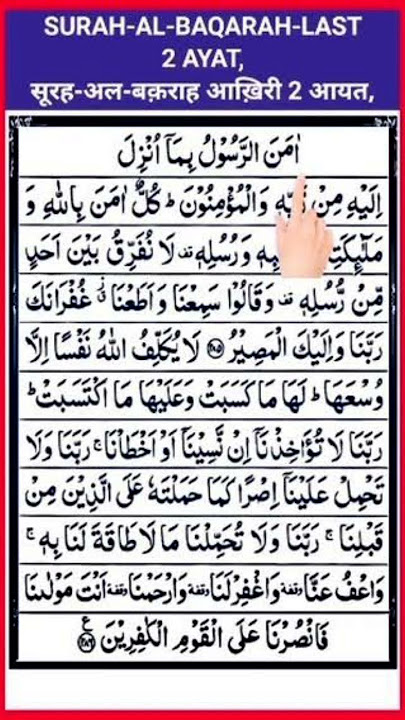 SURAH-AL-BAQARAH-LAST
2 AYAT,
सूरह-अल-बक़राह आख़िरी 2 आयत,
اٰمَنَ الرَّسُوْلُ بِمَاۤ اُنْزِلَ
اِلَيْهِ مِنْ رَّبِّهٖ وَالْمُؤْمِنُوْنَ ؕ كُلٌّ اٰمَنَ بِاللّٰهِ وَ
وَرُسُلِهٖ ࣞ لَا نُفَرِّقُ بَيْنَ اَحَدٍ
مِّنْ رُّسُلِهٖ ࣞ وَقَالُوْا سَمِعْنَا وَاَطَعْنَا ۗ غُفْرَانَكَ
رَبَّنَا وَاِلَيْكَ الْمَصِيْرُ ﴿۲۸۵﴾ لَا يُكَلِّفُ اللّٰهُ نَفْسًا اِلَّا
وُسْعَهَا ؕ لَهَا مَا كَسَبَتْ وَعَلَيْهَا مَا اكْتَسَبَتْ ؕ
رَبَّنَا لَا تُؤَاخِذْنَاۤ اِنْ نَّسِيْنَاۤ اَوْ اَخْطَاْنَا ۚ رَبَّنَا وَلَا
تَحْمِلْ عَلَيْنَاۤ اِصْرًا كَمَا حَمَلْتَهٗ عَلَى الَّذِيْنَ مِنْ
قَبْلِنَا ۚ رَبَّنَا وَلَا تُحَمِّلْنَا مَا لَا طَاقَةَ لَنَا بِهٖ ۚ
وَاعْفُ عَنَّا وقفة وَاغْفِرْ لَنَا وقفة وَارْحَمْنَا وقفة اَنْتَ مَوْلٰىنَا
فَانْصُرْنَا عَلَى الْقَوْمِ الْكٰفِرِيْنَ ﴿۲۸۶﴾ ع